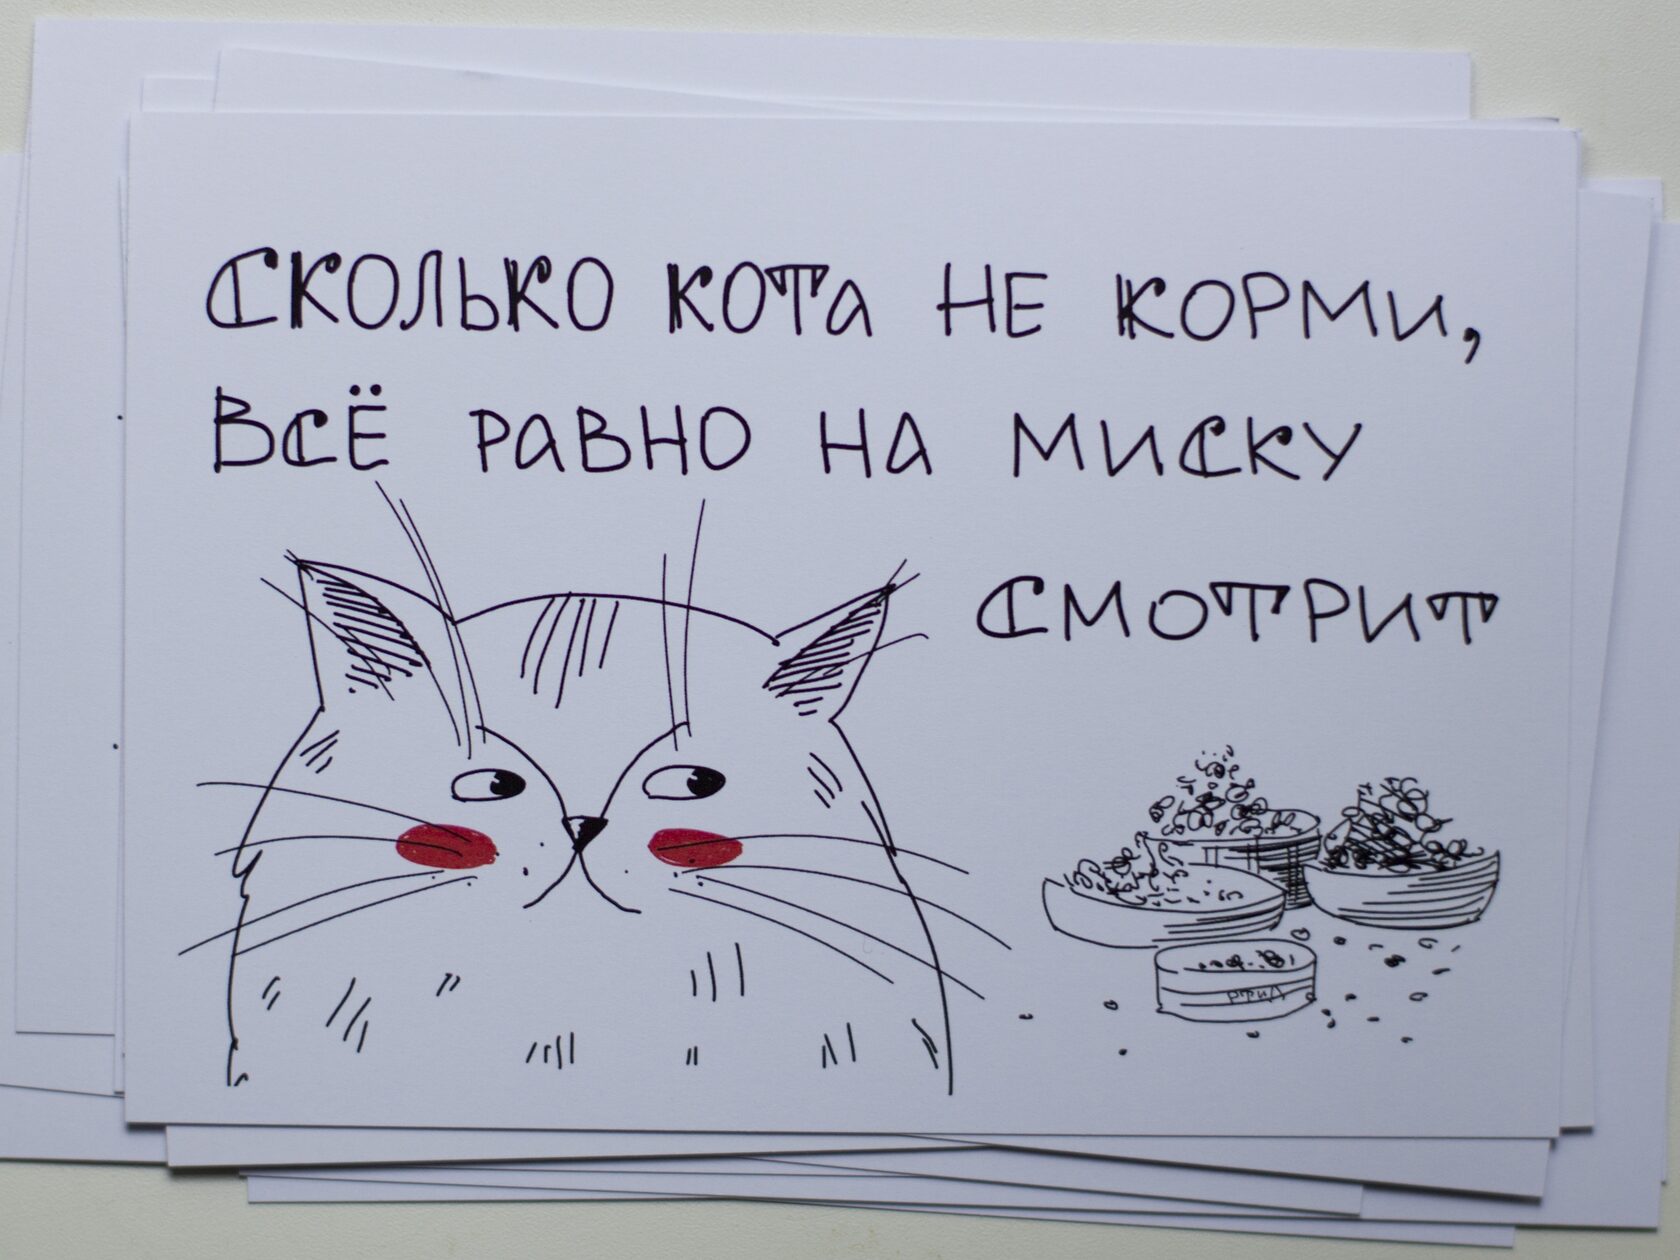 СКОЛЬКО КОТА НЕ КОРМИ,
ВСЁ РАВНО НА МИСКУ
СМОТРИТ